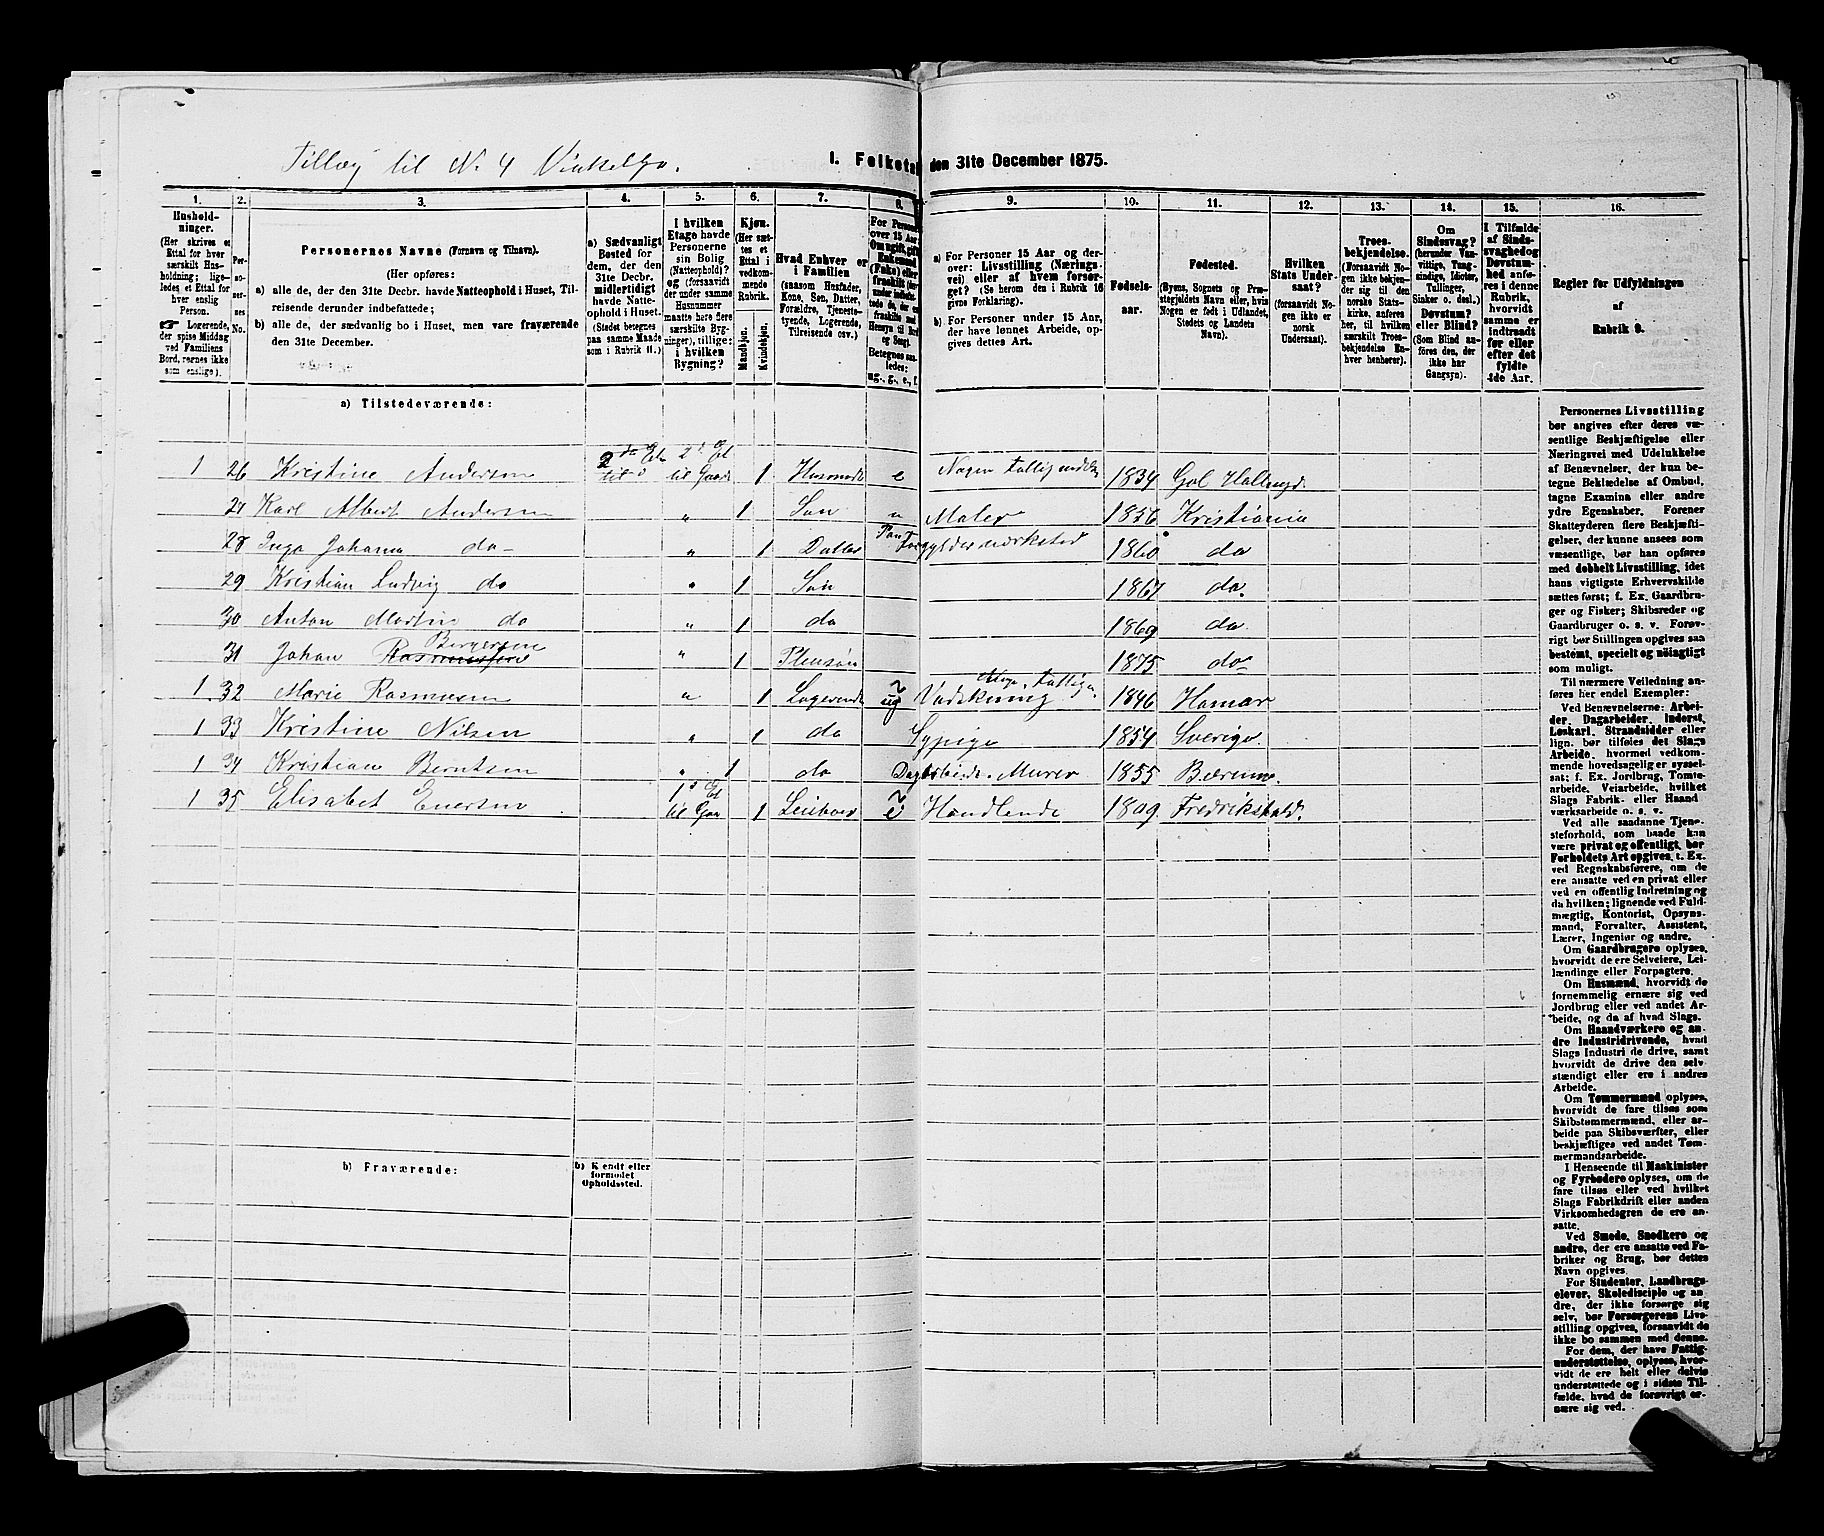 Tillæg til N. 4 Vinkelg.
I. Folketal den 31te December 1875.
1. 2. 3. 4. 5. 6. 7. 8. 9. 10. 11. 12. 13. 14. 15. 16.
Husholdninger.
(Her skrives et Ettal for hver særskilt Husholdning; ligeledes et Ettal for hver enslig Person.
☞ Logerende, der spise Middag ved Familiens Bord, regnes ikke som enslige).
Personernes No.
Personernes Navne (Fornavn og Tilnavn).
(Her opføres:
a) alle de, der den 31te Decbr. havde Natteophold i Huset, Tilreisende derunder indbefattede;
b) alle de, der sædvanlig bo i Huset, men vare fraværende den 31te December.
a) Sædvanligt Bosted for dem, der den 31te Decbr. midlertidigt havde Natteophold i Huset.
(Stedet betegnes paa samme Maade som i Rubrik 11.)
I hvilken Etage havde Personerne sin Bolig (Natteophold)? og (forsaavidt der under samme Husnummer maatte høre flere særskilte Bygninger), tillige: i hvilken Bygning?
Kjøn.
(Her sættes et Ettal i vedkommende Rubrik.
Mandkjøn.
Kvindekjøn.
Hvad Enhver er i Familien
(saasom Husfader, Kone, Søn, Datter, Forældre, Tjenestetyende, Logerende, Tilreisende osv.)
For Personer over 15 Aar
Betegnes saaledes: ug., g., e., f.
a) For Personer 15 Aar og derover: Livsstilling (Næringsvei) eller af hvem forsørget? (Se herom den i Rubrik 16 givne Forklaring).
b) For Personer under 15 Aar, der have lønnet Arbeide, opgives dettes Art.
Fødselsaar.
Fødested.
(Byens, Sognets og Præstegjeldets Navn eller, hvis Nogen er født i Udlandet, Stedets og Landets Navn).
Hvilken Stats Undersaat?
(forsaavidt Nogen ikke er norsk Undersaat).
Troesbekjendelse.
(Forsaavidt Nogen ikke bekjender sig til den norske Statskirke, anføres her, til hvilken særskilt Troesbekjendelse Enhver henhører).
Om Sindssvag? (herunder Vanvittige, Tungsindige, Idioter, Tullinger, Sinker o. desl.) Døvstum? eller Blind?
(Som Blind anføres den, der ikke har Gangsyn).
I Tilfælde af Sindssvaghed og Døvstumhed anføres i denne Rubrik, hvorvidt samme er indtraadt før eller efter det fyldte 4de Aar.
Regler for Udfyldningen
af
Rubrik 9.
a) Tilstedeværende:
1 26 Kristine Andersen 2 Et til Gaard 1 Husmod e 1834 Gol Hallingd.
27 Karl Albert Andersen „ 1 Søn Maler 1856 Kristiania
28 Inga Johanna do „ 1 Datter 1860 do
29 Kristian Ludvig do „ 1 Søn 1867 do.
30 Anton Martin do „ 1 do 1869 do
31 Johan Rasmussen Bergersen „ 1 Pleiesøn 1875 do
1 32 Marie Rasmusen „ 1 Logerende ug Vadskning 1846 Hamar
1 33 Kristine Nilsen „ 1 do Sypige 1854 Sverige.
1 34 Kristian Berntsen „ 1 do Dagarbeide. Murer 1855 Bærum.
1 35 Elisabet Enersen 1 Et til Gaa 1 e Handlende 1809 Fredrikshald.
b) Fraværende:
b) Kjendt eller formodet Opholdssted.
Personernes Livsstilling bør angives efter deres væsentlige Beskjæftigelse eller Næringsvei med Udelukkelse af Benævnelser, der kun betegne Beklædelse af Ombud, tagne Examina eller andre ydre Egenskaber. Forener Skatteyderen flere Beskjæftigelser, der kunne ansees som væsentlige, bør han opføres med dobbelt Livsstilling, idet hans vigtigste Erhvervskilde sættes først; f. Ex. Gaardbruger og Fisker; Skibsreder og Gaardbruger o. s. v. Forøvrigt bør Stillingen opgives saa bestemt, specielt og nøiagtigt som muligt.
Til nærmere Veiledning anføres her endel Exempler:
Ved Benævnelserne: Arbeider, Dagarbeider, Inderst, Løskarl, Strandsidder eller lign. bør tilføies det Slags Arbeide, hvormed vedkommende hovedsagelig er sysselsat; f. Ex. Jordbrug, Tomtearbeide, Veiarbeide, hvilket Slags Fabrik- eller Haandværksarbeide o. s. v.
Ved alle saadanne Tjenesteforhold, som baade kan være privat og offentligt, bør Forholdets Art opgives, t. Ex. ved Regnskabsførere, om de ere ansatte ved en privat eller ved en offentlig Indretning og da hvilken; lignende ved Fuldmægtig, Kontorist, Opsynsmand, Forvalter, Assistent, Lærer, Ingeniør og andre.
Om Gaardbrugere oplyses, hvorvidt de ere Selveiere, Leilændinge eller Forpagtere.
Om Husmænd, hvorvidt de fornemmelig ernære sig ved Jordbrug eller ved andet Arbeide, og da af hvad Slags.
Om Haandværkere og andre Industridrivende, hvad Slags Industri de drive, samt hvorvidt de drive den selvstændigt eller ere i andres Arbeide.
Om Tømmermænd oplyses, hvorvidt de fare tilsøs som Skibstømmermænd, eller arbeide paa Skibsværfter, eller beskjæftiges ved andet Tømmermandsarbeide.
I Henseende til Maskinister og Fyrbødere oplyses, om de fare tilsøs eller ved hvilket Slags Fabrikdrift eller anden Virksomhedsgren de ere ansatte.
Ved Smede, Snedkere og andre, der ere ansatte ved Fabriker og Brug, bør dettes Navn opgives.
For Studenter, Landbrugselever, Skoledisciple og andre, der ikke forsørge sig selv, bør Forsørgerens Livsstilling opgives, forsaavidt de ikke bo sammen med denne.
For dem, der have Fattigunderstøttelse, oplyses, hvorvidt de ere helt eller delvis understøttede og i sidste Tilfælde, hvad de forøvrigt ernære sig ved.